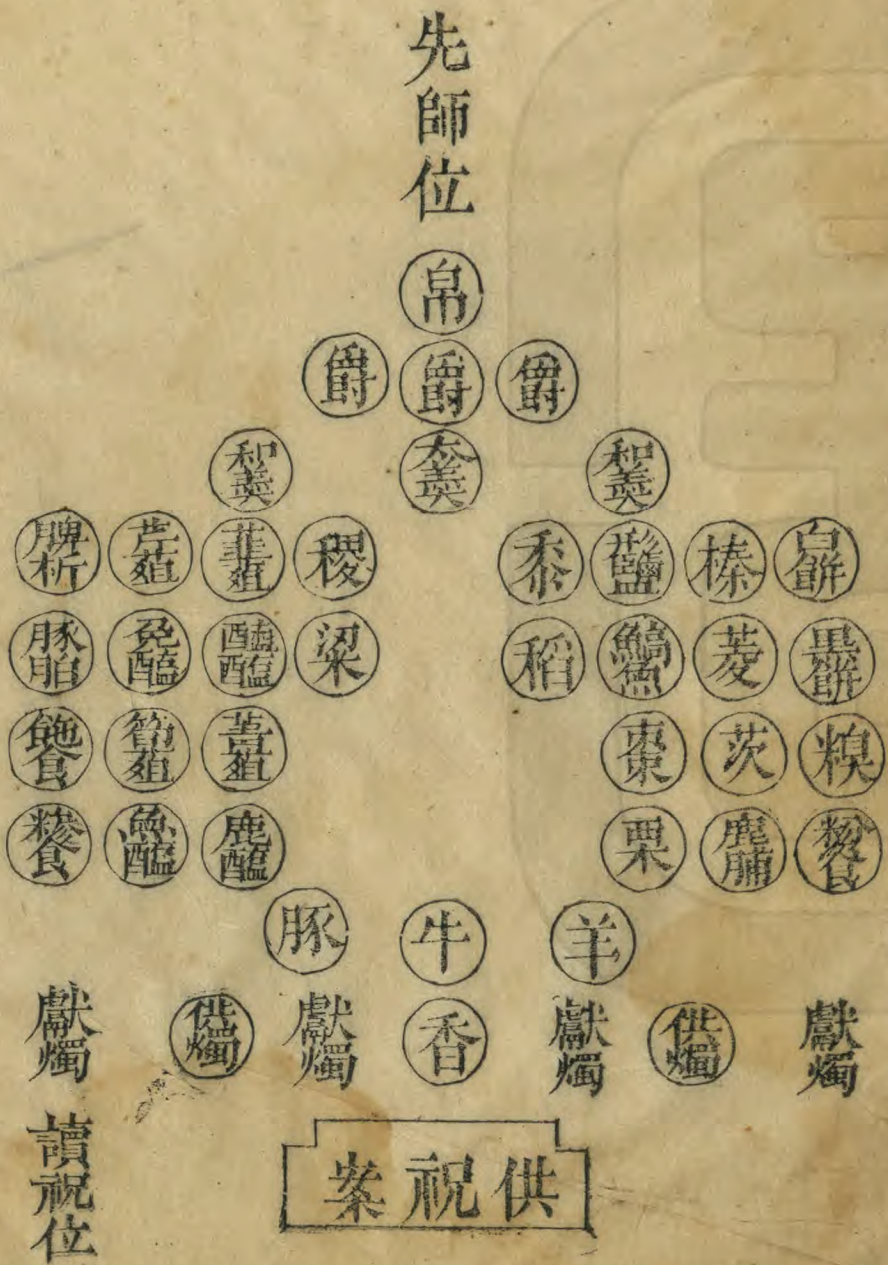 先師位
帛
爵 爵 爵
和羹 太羹 和羹
脾析 芹菹 菲菹 稷 黍 形鹽 榛 白餅
豚胉 兔醢 醓醢 粱 稻 鱐魚 菱 黑餅
飽食 筍菹 菁菹 棗 茨 糗
糝食 魚醢 鹿醢 栗 鹿脯 粉食
豚 牛 羊
獻燭 供燭 獻燭 香 獻燭 供燭 獻燭
讀祝位
供祝案